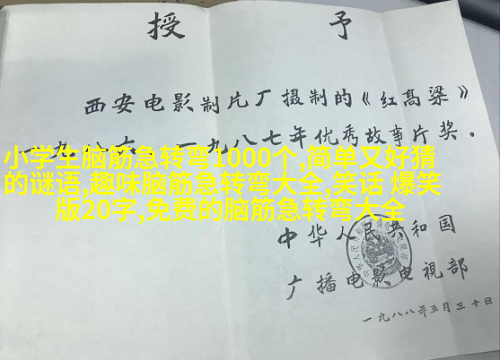 授 予
西安电影制片厂摄制的《红高粱》
一九八六、一九八七年优秀故事片奖。
小学生脑筋急转弯1000个,简单又好猜
的谜语,趣味脑筋急转弯大全,笑话 爆笑
版20字,免费的脑筋急转弯大全
中华人民共和国
广播电影电視部
一九八八年三月三十日